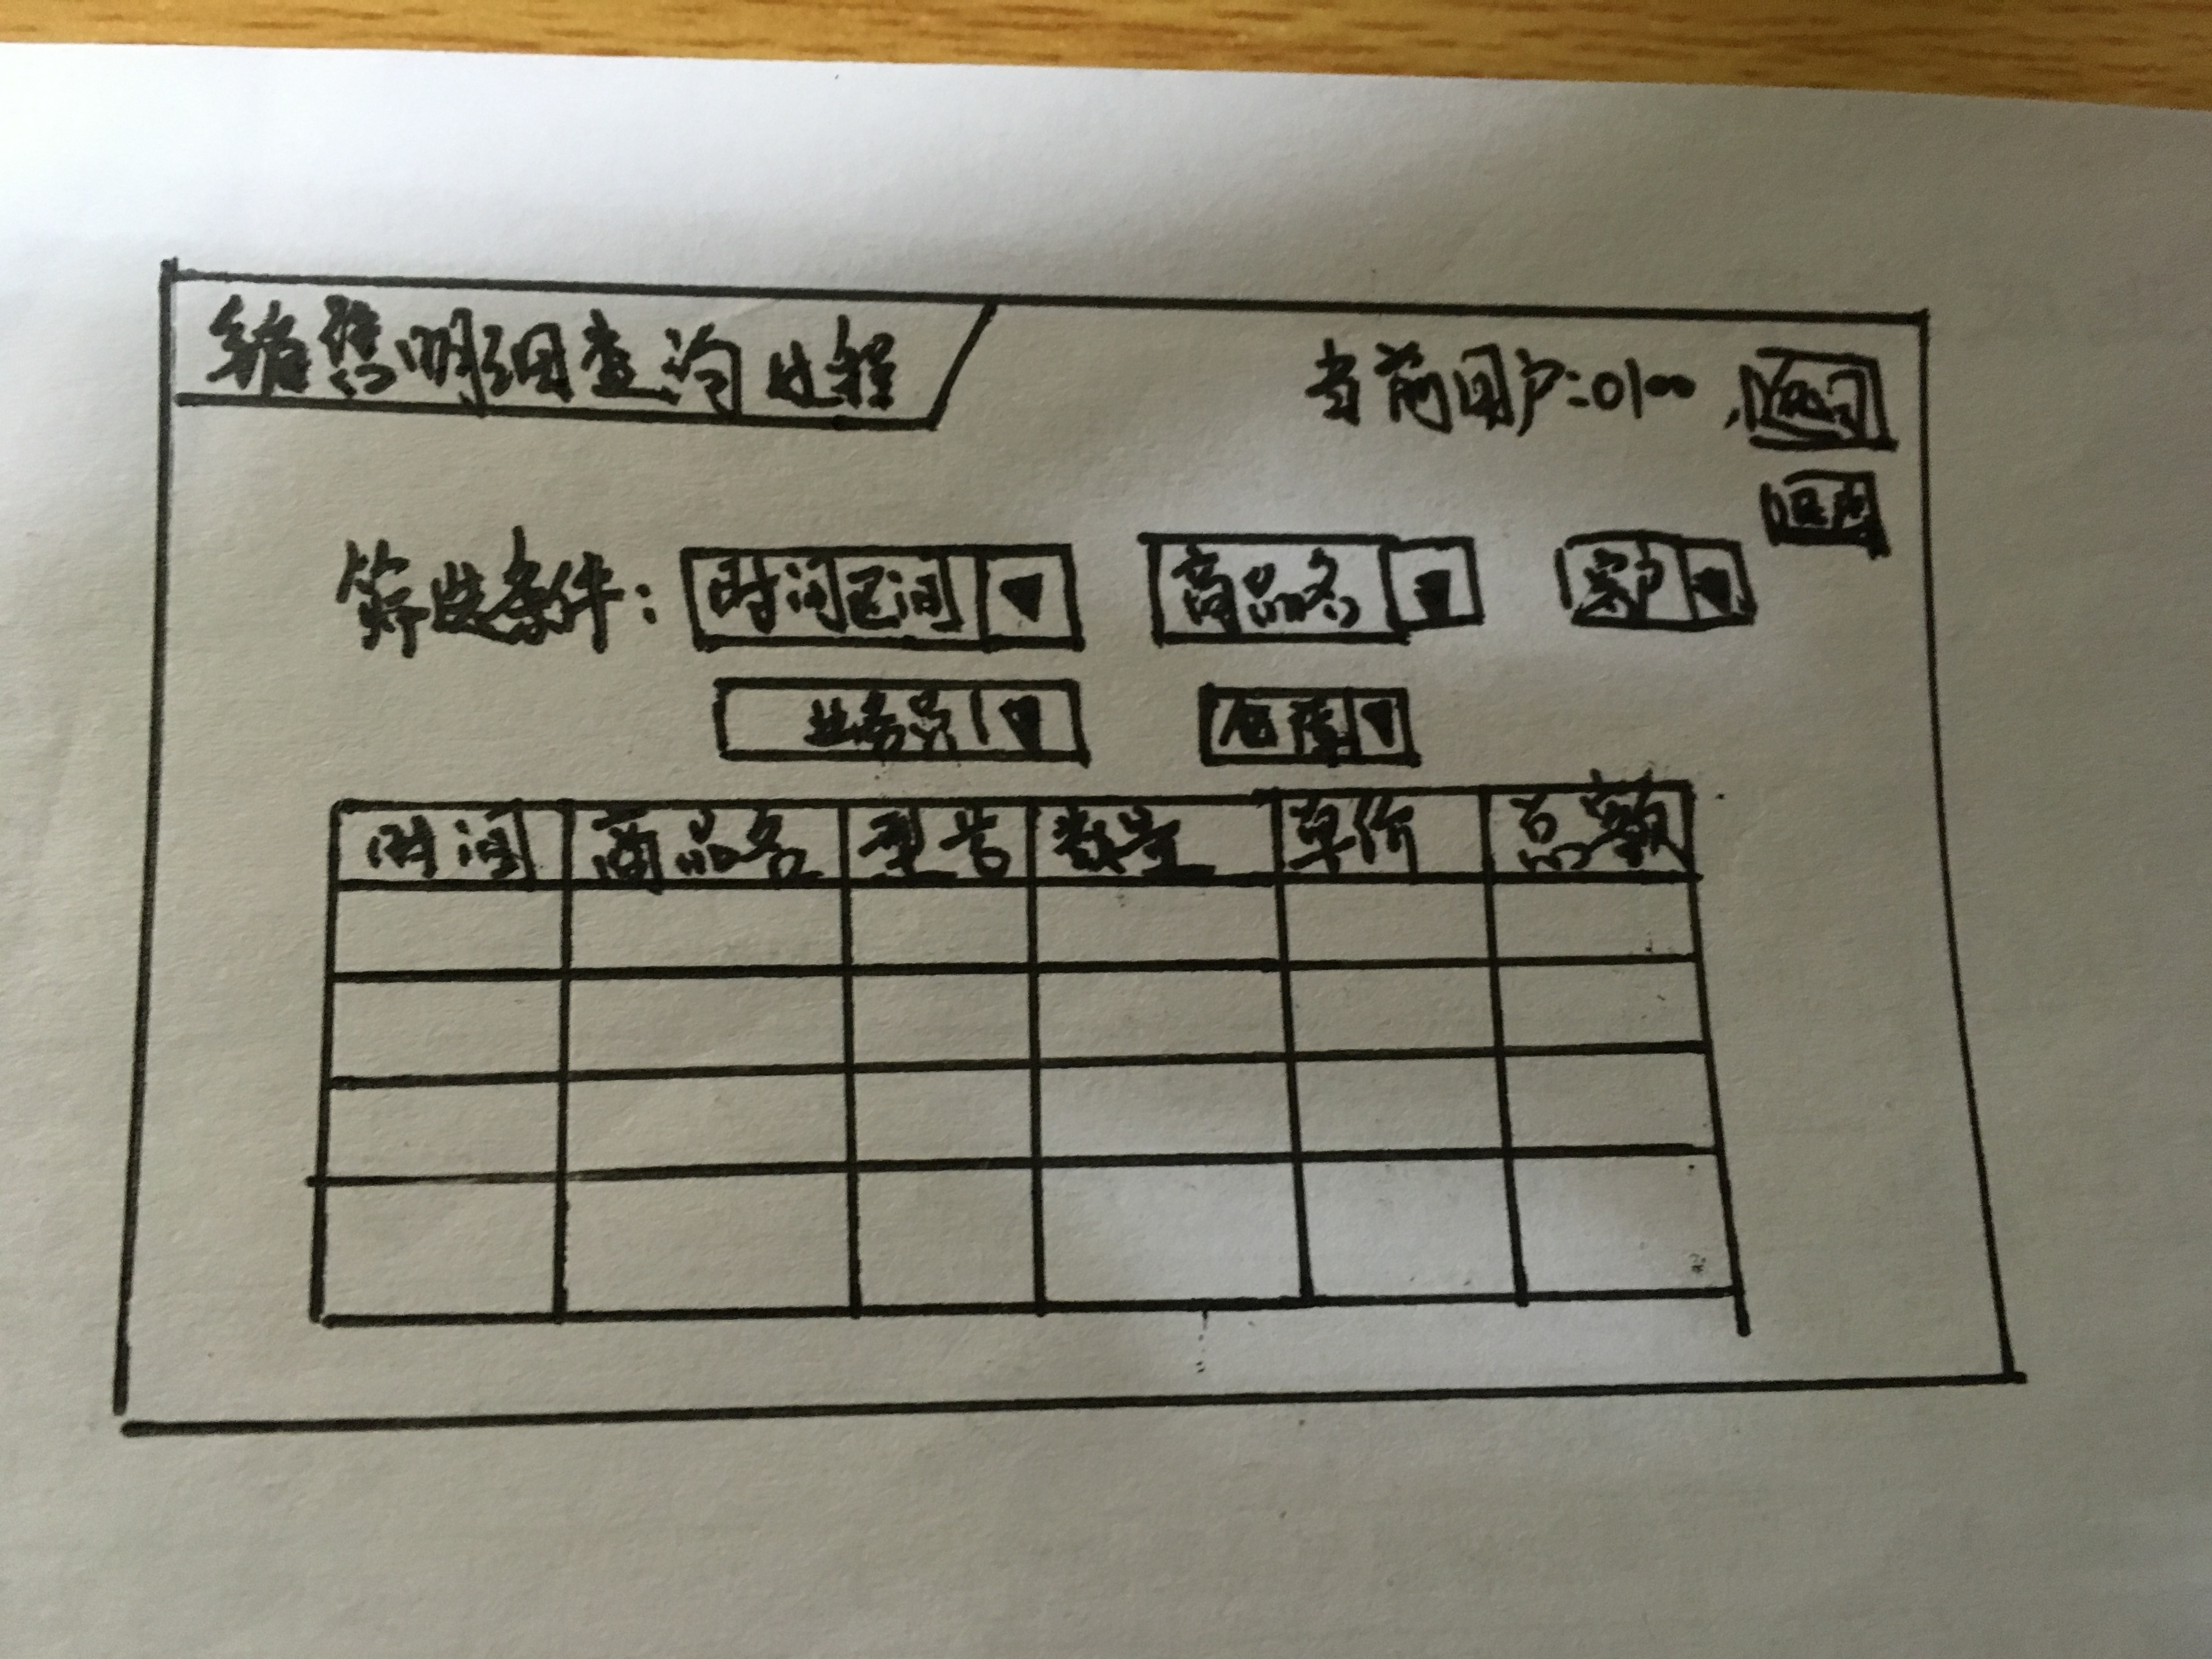 销售明细查询 比较
当前用户:0100 退出
筛选条件: 时间区间 商品名 客户
业务员 仓库
时间 商品名 型号 数量 单价 总额